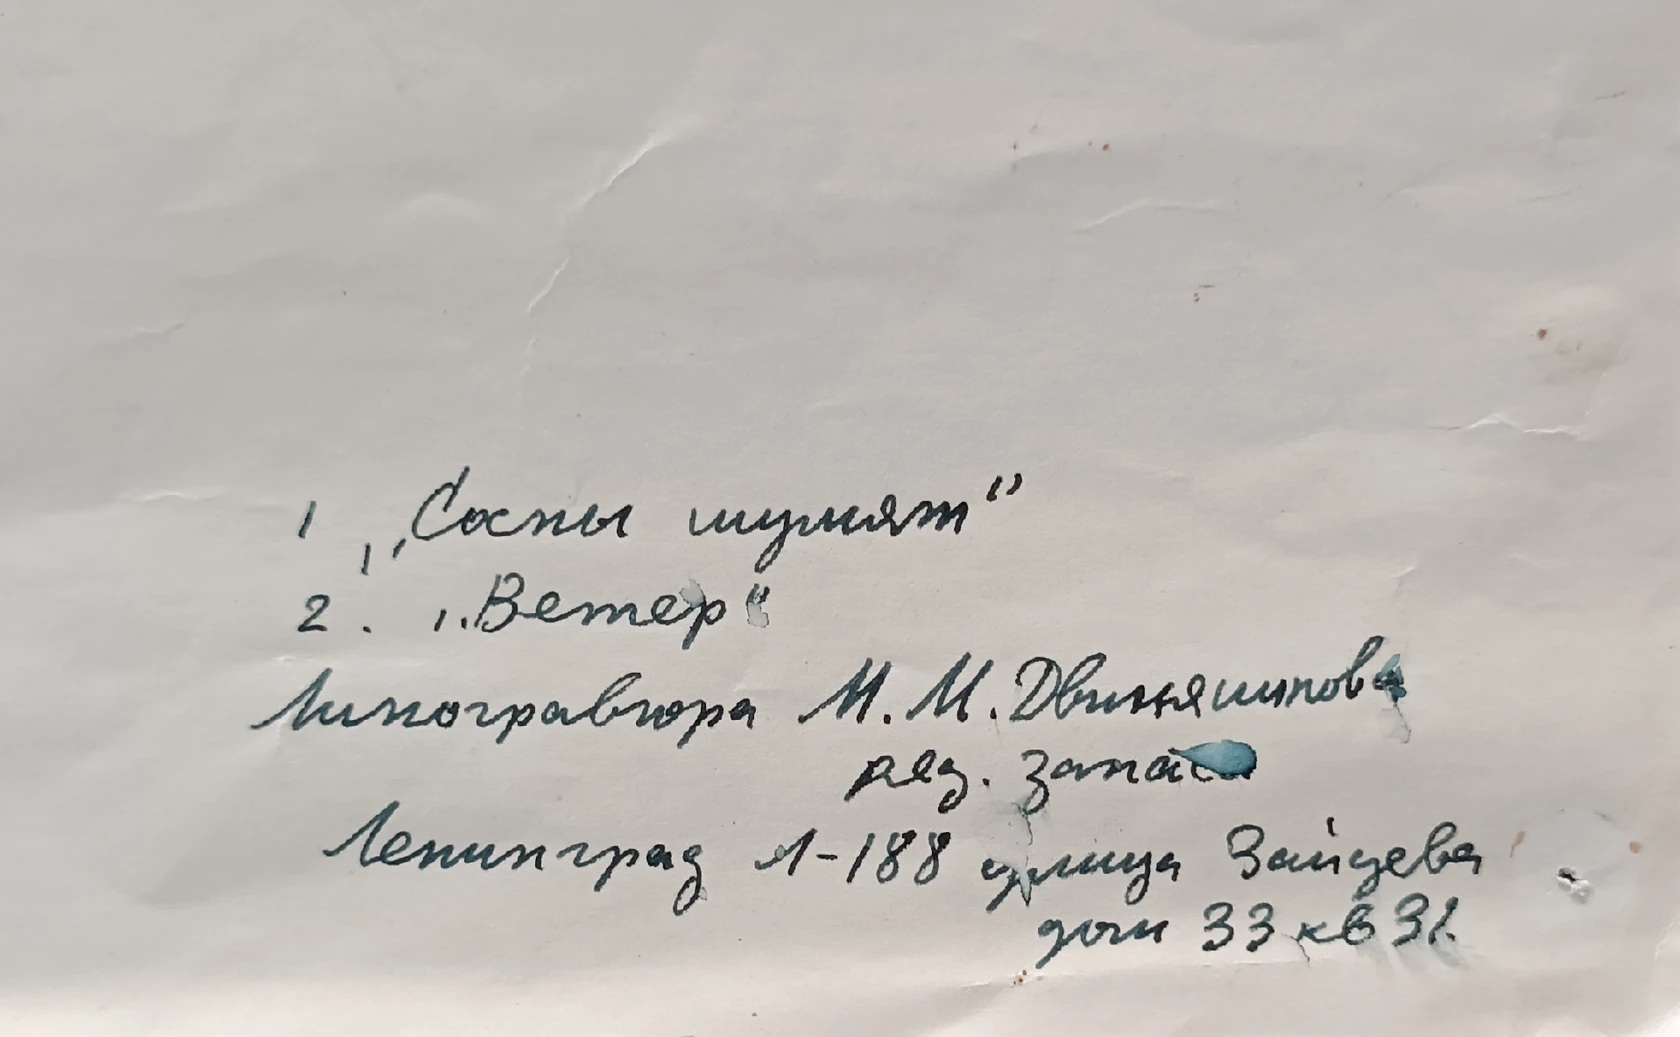 1 „Сосны шумят"
2. „Ветер"
Линогравюра М. М. Двиняшинова
ряд. запаса
Ленинград Л-188 улица Зайцева
дом 33 кв 31.